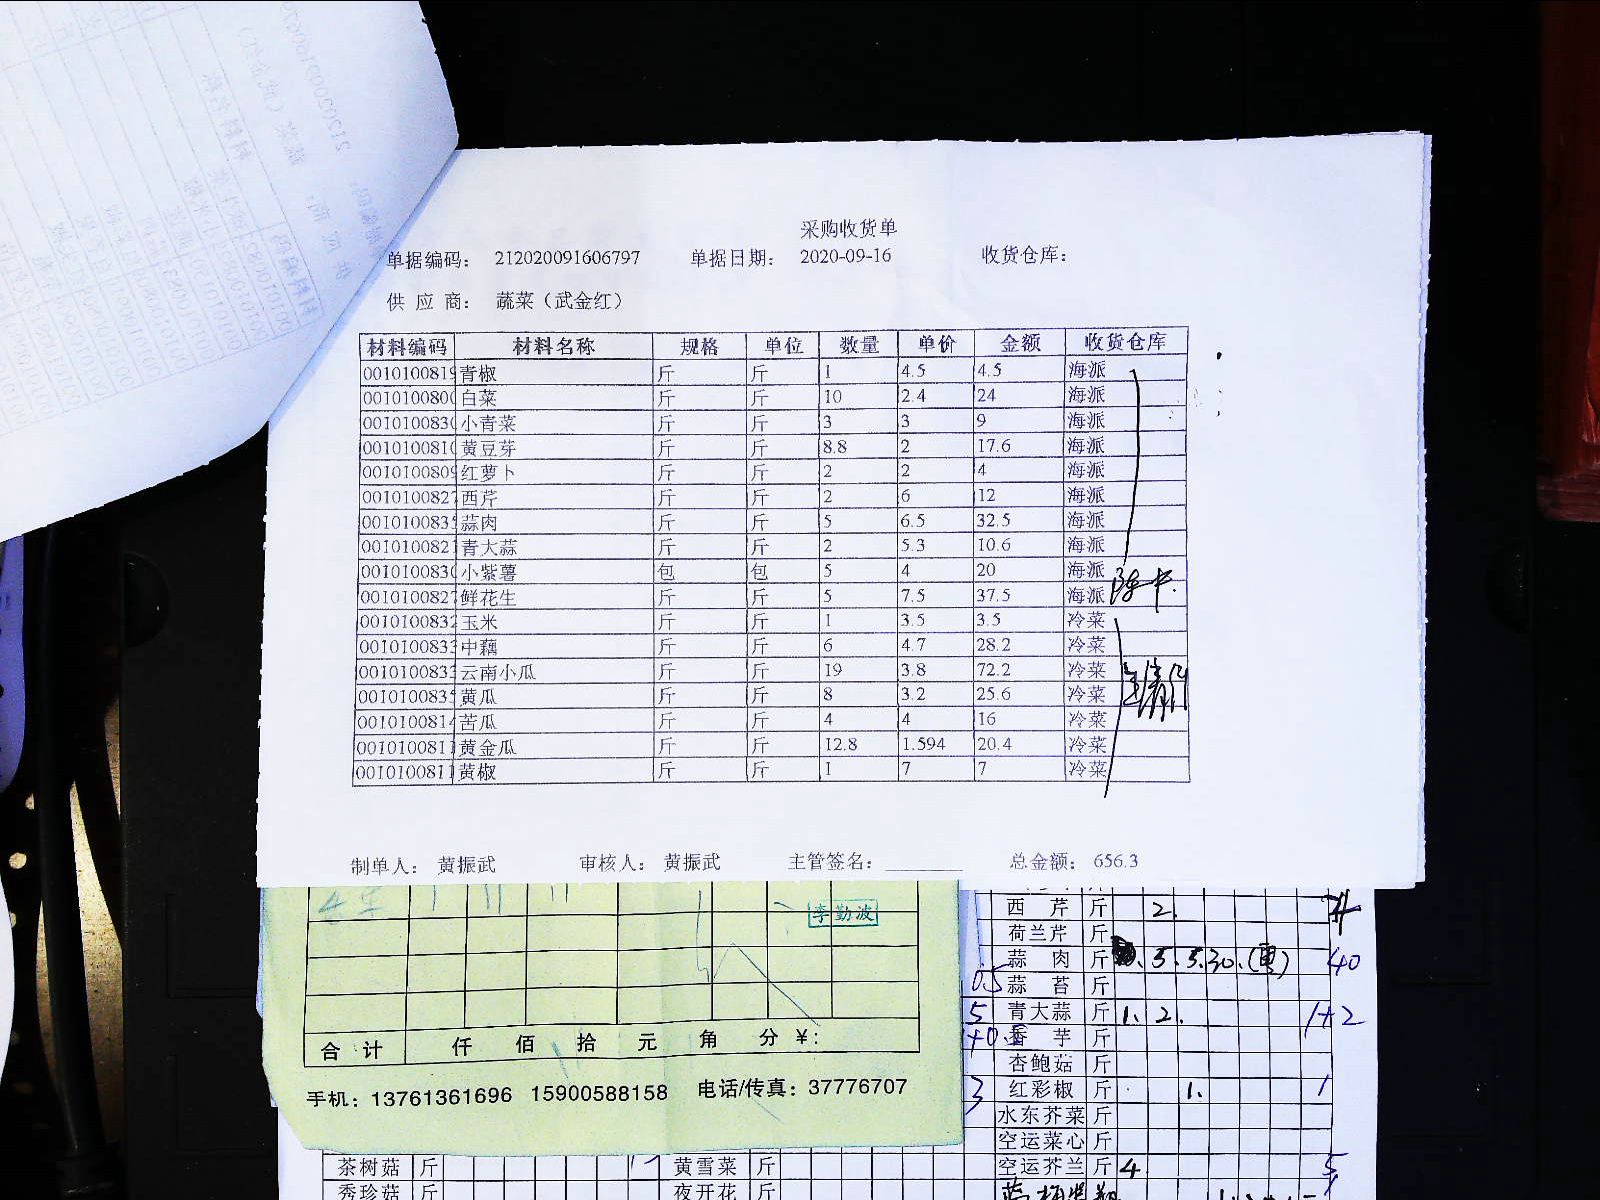 采购收货单
单据编码： 212020091606797 单据日期： 2020-09-16 收货仓库：
供 应 商： 蔬菜（武金红）
材料编码 材料名称 规格 单位 数量 单价 金额 收货仓库
0010100819 青椒 斤 斤 1 4.5 4.5 海派
001010080 白菜 斤 斤 10 2.4 24 海派
001010083 小青菜 斤 斤 3 3 9 海派
001010081 黄豆芽 斤 斤 8.8 2 17.6 海派
001010080 红萝卜 斤 斤 2 2 4 海派
001010082 西芹 斤 斤 2 6 12 海派
001010083 蒜肉 斤 斤 5 6.5 32.5 海派
001010082 青大蒜 斤 斤 2 5.3 10.6 海派
001010083 小紫薯 包 包 5 4 20 海派
001010082 鲜花生 斤 斤 5 7.5 37.5 海派
001010083 玉米 斤 斤 1 3.5 3.5 冷菜
001010083 中藕 斤 斤 6 4.7 28.2 冷菜
001010083 云南小瓜 斤 斤 19 3.8 72.2 冷菜
001010083 黄瓜 斤 斤 8 3.2 25.6 冷菜
001010081 苦瓜 斤 斤 4 4 16 冷菜
001010081 黄金瓜 斤 斤 12.8 1.594 20.4 冷菜
001010081 黄椒 斤 斤 1 7 7 冷菜
制单人： 黄振武 审核人： 黄振武 主管签名： 总金额： 656.3
李勤波
合 计 仟 佰 拾 元 角 分 ¥:
手机：13761361696 15900588158 电话/传真：37776707
西 芹 斤 2.
荷兰芹 斤
蒜 肉 斤 5. 5. 30. 40
蒜 苔 斤
5 青大蒜 斤 1. 2. 1+2
香 芋 斤
杏鲍菇 斤
3 红彩椒 斤 1. 1
水东芥菜 斤
空运菜心 斤
茶树菇 斤 黄雪菜 斤 空运芥兰 斤 4. 5
秀珍菇 斤 夜开花 斤